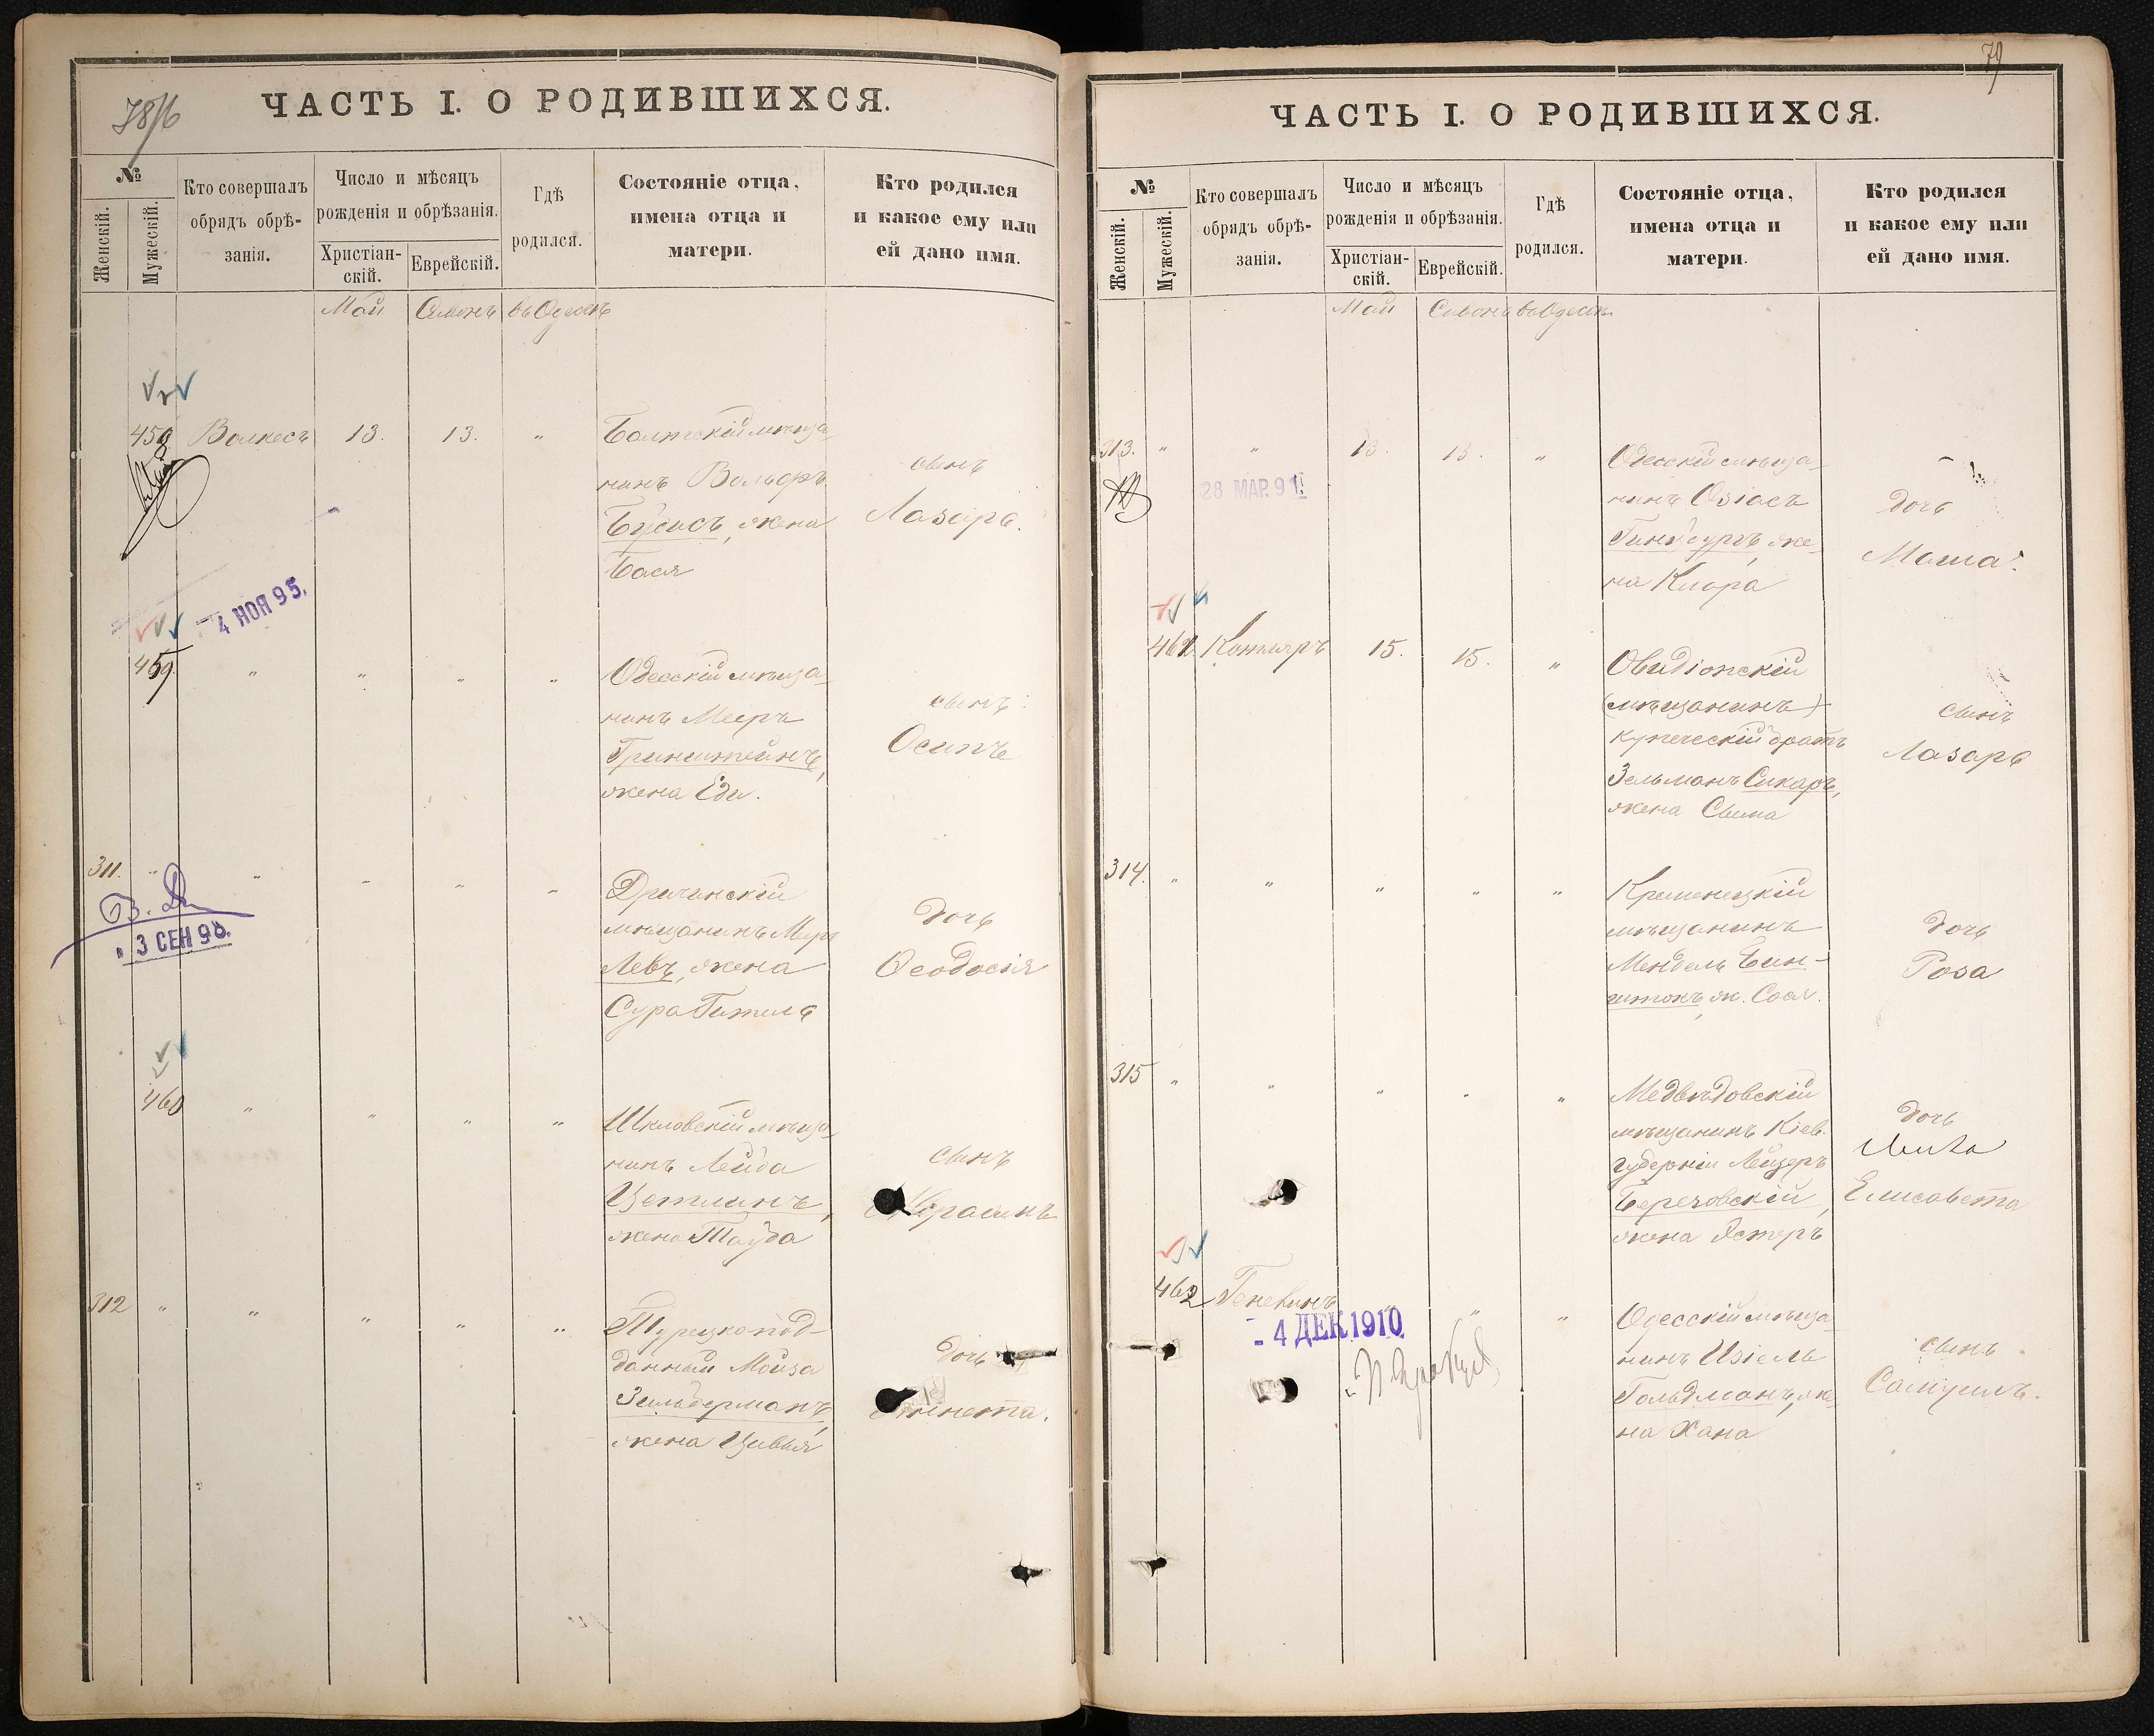 78/б
ЧАСТЬ I. О РОДИВШИХСЯ.
№
Женскій.
Мужескій.
Кто совершалъ
обрядъ обрѣ-
занія.
Число и мѣсяцъ
рожденія и обрѣзанія.
Христіан-
скій.
Еврейскій.
Гдѣ
родился.
Состояніе отца,
имена отца и
матери.
Кто родился
и какое ему или
ей дано имя.
Май Сивонъ въ Одессѣ
458 Волкесъ 13. 13. "
Балтскій мѣща-
нинъ Вольфъ
Бусисъ, жена
Бася
сынъ
Лазарь.
4 НОЯ 95.
459. " " " "
Одесскій мѣща-
нинъ Мееръ
Гринштейнъ,
жена Еди.
сынъ
Осипъ
311. " " " " "
мѣщанинъ
Левъ, жена
Сура Гитель
дочь
Ѳеодосія
В.
3 СЕН 98.
460 " " " "
Шкловскій мѣща-
нинъ Лейба
Цетлинъ,
жена
сынъ
312 " " " " "
Турецкоподд-
данный Мойза
Зильберманъ,
жена Цивья
дочь
79
ЧАСТЬ I. О РОДИВШИХСЯ.
№
Женскій.
Мужескій.
Кто совершалъ
обрядъ обрѣ-
занія.
Число и мѣсяцъ
рожденія и обрѣзанія.
Христіан-
скій.
Еврейскій.
Гдѣ
родился.
Состояніе отца,
имена отца и
матери.
Кто родился
и какое ему или
ей дано имя.
Май Сивонъ въ Одессѣ
313. " " 13. 13. "
Одесскій мѣща-
нинъ Озіасъ
Гинзбургъ, же-
на Клара
дочь
Маша
28 МАР. 91
461 15. 15. "
Овидіопскій
(мѣщанинъ)
купеческій братъ
Зельманъ Сикаръ,
жена Сима
сынъ
Лазарь
314. " " " " "
Кременецкій
мѣщанинъ
Мендель Бин-
штокъ, ж. Сося.
дочь
Роза
315 " " " " "
Медвѣдовскій
мѣщанинъ Кіев.
губерніи Лейзеръ
Береговскій,
жена Эстеръ
дочь
Елисавета
462 " " "
Одесскій мѣща-
нинъ Изіель
Гольдманъ, же-
на Хана
сынъ
Самуилъ.
- 4 ДЕК 1910